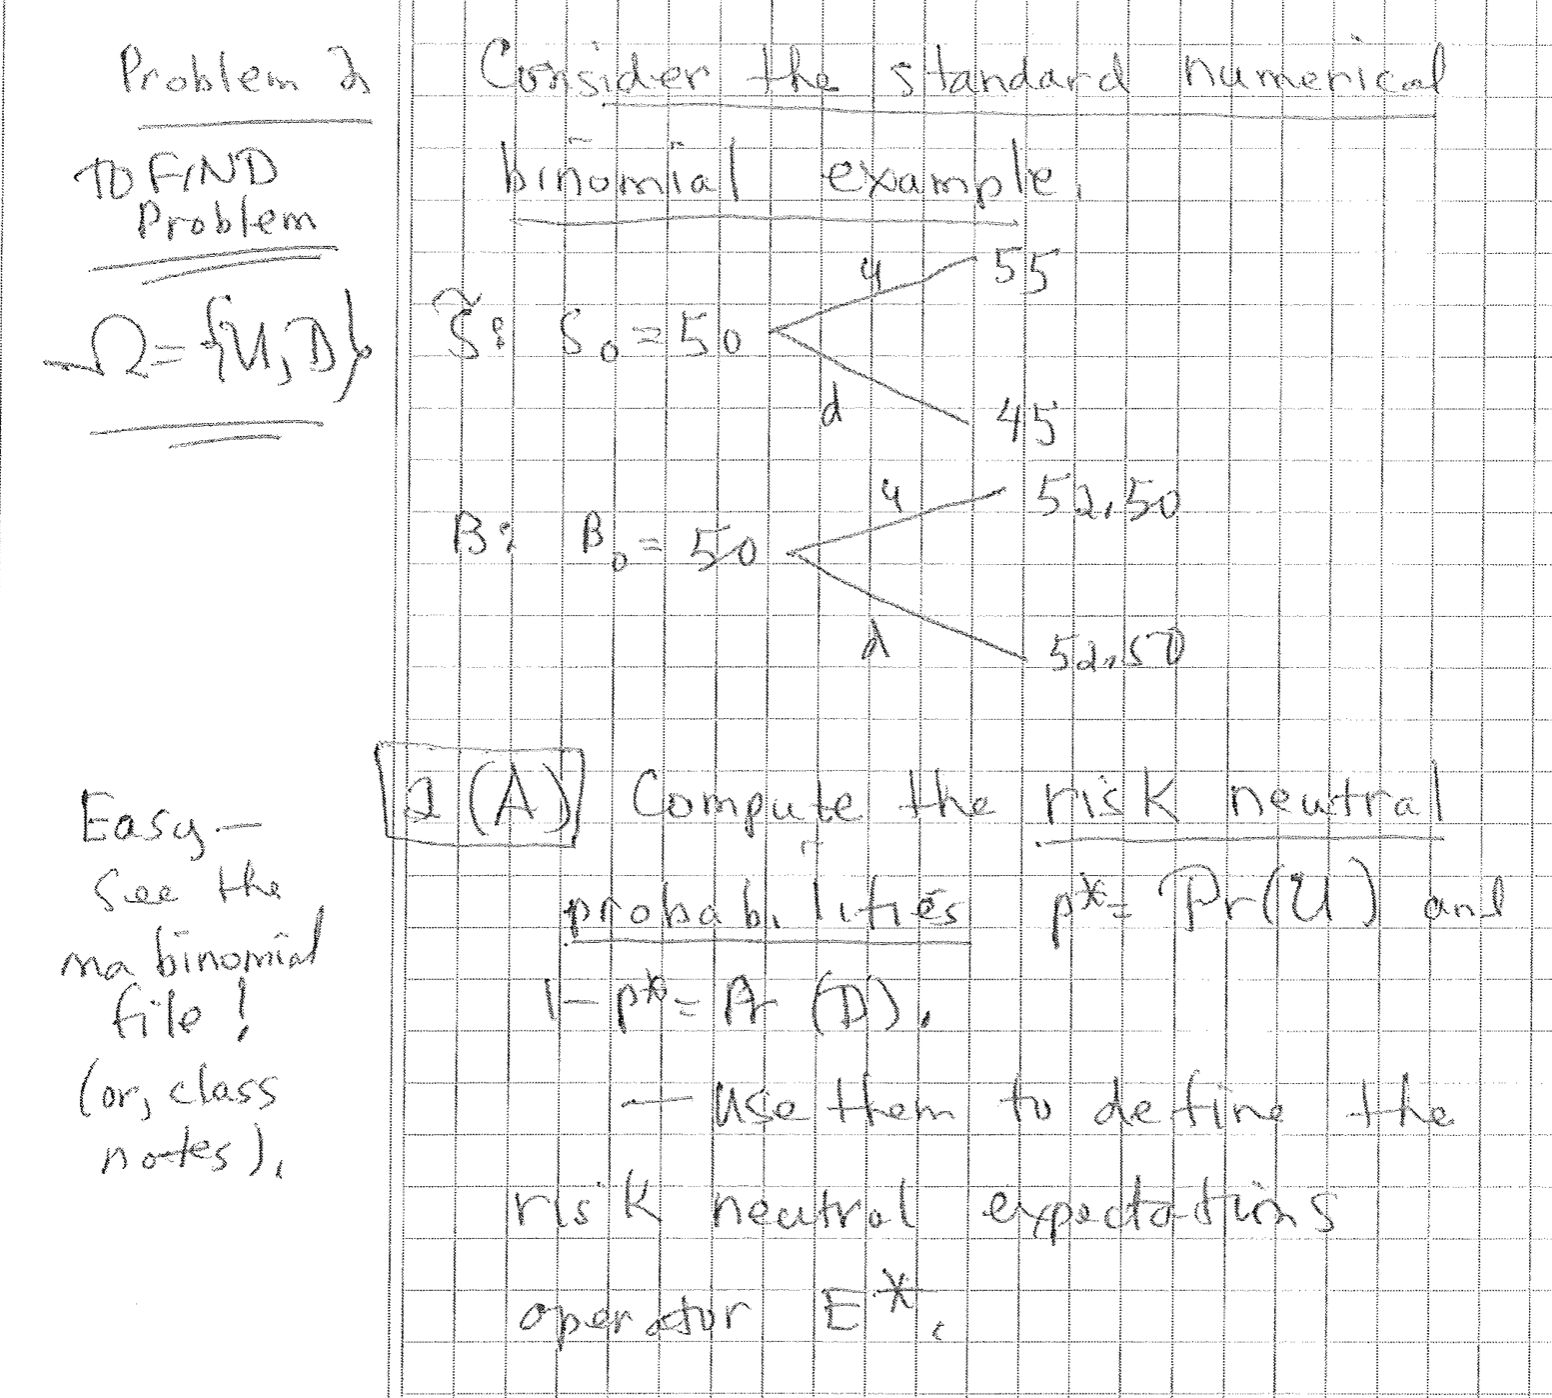 Problem 2
TO FIND
Problem
Ω = {U, D}
Consider the standard numerical
binomial example.
u 55
S̃: S₀ = 50
d 45
u 52.50
B: B₀ = 50
d 52.50
Easy —
See the
ma binomial
file!
(or, class
notes).
2(A) Compute the risk neutral
probabilities p* = Pr(U) and
1 - p* = Pr(D).
— Use them to define the
risk neutral expectations
operator E*.